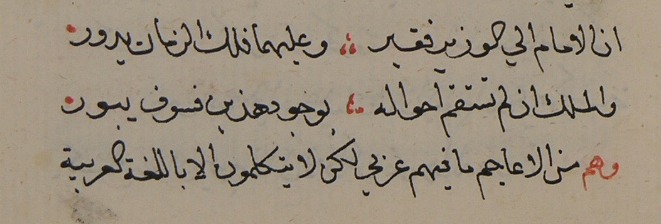 ان الامام الي الوزير فقير ؞ وعليهما فلك الزمان يدور
والملك ان لم تستقم احواله ؞ بوجود هذين فسوف يبور
وهم من الاعاجم ما فيهم عربي لكن لا يتكلمون الا باللغة العربية